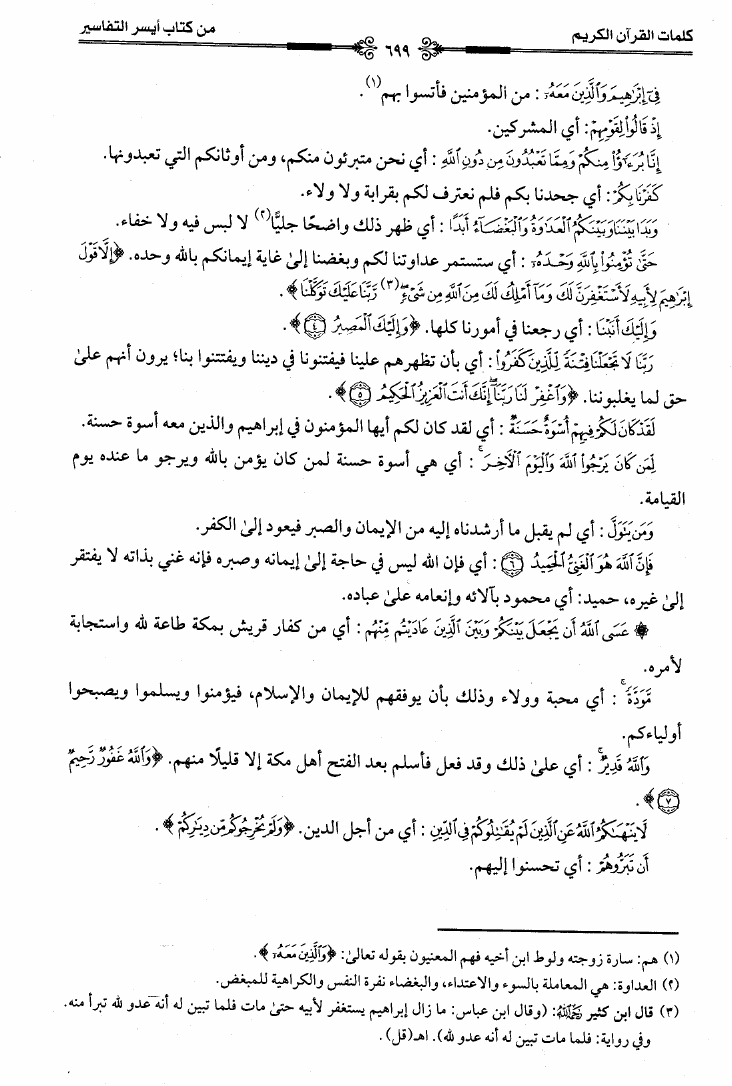 كلمات القرآن الكريم ٦٩٩ من كتاب أيسر التفاسير
فِىٓ إِبْرَٰهِيمَ وَٱلَّذِينَ مَعَهُۥٓ : من المؤمنين فأتسوا بهم(١).
إِذْ قَالُوا۟ لِقَوْمِهِمْ: أي المشركين.
إِنَّا بُرَءَٰٓؤُا۟ مِنكُمْ وَمِمَّا تَعْبُدُونَ مِن دُونِ ٱللَّهِ : أي نحن متبرئون منكم، ومن أوثانكم التي تعبدونها.
كَفَرْنَا بِكُمْ: أي جحدنا بكم فلم نعترف لكم بقرابة ولا ولاء.
وَبَدَا بَيْنَنَا وَبَيْنَكُمُ ٱلْعَدَٰوَةُ وَٱلْبَغْضَآءُ أَبَدًا : أي ظهر ذلك واضحًا جليًّا(٢) لا لبس فيه ولا خفاء.
حَتَّىٰ تُؤْمِنُوا۟ بِٱللَّهِ وَحْدَهُۥٓ : أي ستستمر عداوتنا لكم وبغضنا إلىٰ غاية إيمانكم بالله وحده. ﴿إِلَّا قَوْلَ
إِبْرَٰهِيمَ لِأَبِيهِ لَأَسْتَغْفِرَنَّ لَكَ وَمَآ أَمْلِكُ لَكَ مِنَ ٱللَّهِ مِن شَىْءٍۢ(٣) رَّبَّنَا عَلَيْكَ تَوَكَّلْنَا﴾.
وَإِلَيْكَ أَنَبْنَا : أي رجعنا في أمورنا كلها. ﴿وَإِلَيْكَ ٱلْمَصِيرُ ٤﴾.
رَبَّنَا لَا تَجْعَلْنَا فِتْنَةً لِّلَّذِينَ كَفَرُوا۟ : أي بأن تظهرهم علينا فيفتنونا في ديننا ويفتتنوا بنا؛ يرون أنهم علىٰ
حق لما يغلبوننا. ﴿وَٱغْفِرْ لَنَا رَبَّنَآ إِنَّكَ أَنتَ ٱلْعَزِيزُ ٱلْحَكِيمُ ٥﴾.
لَقَدْ كَانَ لَكُمْ فِيهِمْ أُسْوَةٌ حَسَنَةٌ : أي لقد كان لكم أيها المؤمنون في إبراهيم والذين معه أسوة حسنة.
لِّمَن كَانَ يَرْجُوا۟ ٱللَّهَ وَٱلْيَوْمَ ٱلْـَٔاخِرَ ۚ : أي هي أسوة حسنة لمن كان يؤمن بالله ويرجو ما عنده يوم
القيامة.
وَمَن يَتَوَلَّ : أي لم يقبل ما أرشدناه إليه من الإيمان والصبر فيعود إلىٰ الكفر.
فَإِنَّ ٱللَّهَ هُوَ ٱلْغَنِىُّ ٱلْحَمِيدُ ٦ : أي فإن الله ليس في حاجة إلىٰ إيمانه وصبره فإنه غني بذاته لا يفتقر
إلىٰ غيره، حميد: أي محمود بآلائه وإنعامه علىٰ عباده.
۞ عَسَى ٱللَّهُ أَن يَجْعَلَ بَيْنَكُمْ وَبَيْنَ ٱلَّذِينَ عَادَيْتُم مِّنْهُم : أي من كفار قريش بمكة طاعة لله واستجابة
لأمره.
مَّوَدَّةً ۚ : أي محبة وولاء وذلك بأن يوفقهم للإيمان والإسلام، فيؤمنوا ويسلموا ويصبحوا
أولياءكم.
وَٱللَّهُ قَدِيرٌ ۚ : أي علىٰ ذلك وقد فعل فأسلم بعد الفتح أهل مكة إلا قليلًا منهم. ﴿وَٱللَّهُ غَفُورٌ رَّحِيمٌ
٧﴾.
لَّا يَنْهَىٰكُمُ ٱللَّهُ عَنِ ٱلَّذِينَ لَمْ يُقَٰتِلُوكُمْ فِى ٱلدِّينِ : أي من أجل الدين. ﴿وَلَمْ يُخْرِجُوكُم مِّن دِيَٰرِكُمْ﴾.
أَن تَبَرُّوهُمْ : أي تحسنوا إليهم.
(١) هم: سارة زوجته ولوط ابن أخيه فهم المعنيون بقوله تعالىٰ: ﴿وَٱلَّذِينَ مَعَهُۥٓ﴾.
(٢) العداوة: هي المعاملة بالسوء والاعتداء، والبغضاء نفرة النفس والكراهية للمبغض.
(٣) قال ابن كثير رَحِمَهُ اللَّهُ: (وقال ابن عباس: ما زال إبراهيم يستغفر لأبيه حتىٰ مات فلما تبين له أنه عدو لله تبرأ منه.
وفي رواية: فلما مات تبين له أنه عدو لله). اهـ(قل).